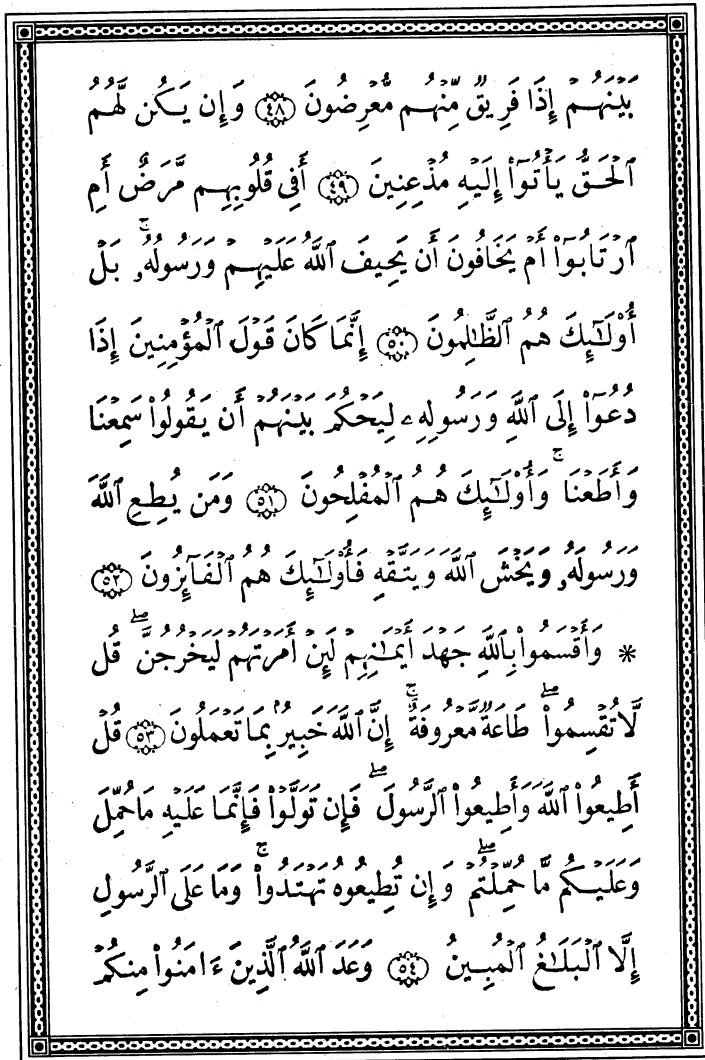 بَيْنَهُمْ إِذَا فَرِيقٌ مِّنْهُم مُّعْرِضُونَ ﴿٤٨﴾ وَإِن يَكُن لَّهُمُ
ٱلْحَقُّ يَأْتُوٓا۟ إِلَيْهِ مُذْعِنِينَ ﴿٤٩﴾ أَفِى قُلُوبِهِم مَّرَضٌ أَمِ
ٱرْتَابُوٓا۟ أَمْ يَخَافُونَ أَن يَحِيفَ ٱللَّهُ عَلَيْهِمْ وَرَسُولُهُۥ ۚ بَلْ
أُو۟لَـٰٓئِكَ هُمُ ٱلظَّـٰلِمُونَ ﴿٥٠﴾ إِنَّمَا كَانَ قَوْلَ ٱلْمُؤْمِنِينَ إِذَا
دُعُوٓا۟ إِلَى ٱللَّهِ وَرَسُولِهِۦ لِيَحْكُمَ بَيْنَهُمْ أَن يَقُولُوا۟ سَمِعْنَا
وَأَطَعْنَا ۚ وَأُو۟لَـٰٓئِكَ هُمُ ٱلْمُفْلِحُونَ ﴿٥١﴾ وَمَن يُطِعِ ٱللَّهَ
وَرَسُولَهُۥ وَيَخْشَ ٱللَّهَ وَيَتَّقْهِ فَأُو۟لَـٰٓئِكَ هُمُ ٱلْفَآئِزُونَ ﴿٥٢﴾
* وَأَقْسَمُوا۟ بِٱللَّهِ جَهْدَ أَيْمَـٰنِهِمْ لَئِنْ أَمَرْتَهُمْ لَيَخْرُجُنَّ ۖ قُل
لَّا تُقْسِمُوا۟ ۖ طَاعَةٌ مَّعْرُوفَةٌ ۚ إِنَّ ٱللَّهَ خَبِيرٌۢ بِمَا تَعْمَلُونَ ﴿٥٣﴾ قُلْ
أَطِيعُوا۟ ٱللَّهَ وَأَطِيعُوا۟ ٱلرَّسُولَ ۖ فَإِن تَوَلَّوْا۟ فَإِنَّمَا عَلَيْهِ مَا حُمِّلَ
وَعَلَيْكُم مَّا حُمِّلْتُمْ ۖ وَإِن تُطِيعُوهُ تَهْتَدُوا۟ ۚ وَمَا عَلَى ٱلرَّسُولِ
إِلَّا ٱلْبَلَـٰغُ ٱلْمُبِينُ ﴿٥٤﴾ وَعَدَ ٱللَّهُ ٱلَّذِينَ ءَامَنُوا۟ مِنكُمْ